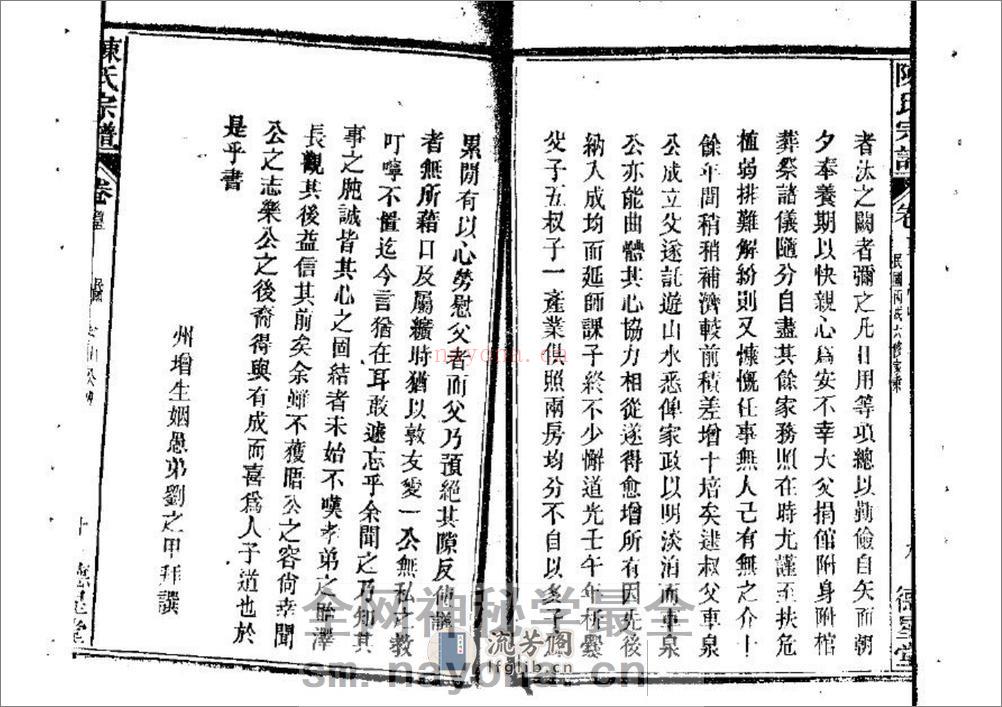 陳氏宗譜
民國丙戌六修家乘
德星堂
者汰之闕者彌之凡日用等項總以勤儉自矢而朝
夕奉養期以快親心為安不幸大父捐館附身附棺
葬祭諮儀隨分自盡其餘家務照在時尤謹至扶危
植弱排難解紛則又慷慨任事無人己有無之介十
餘年間稍稍補濟較前積差增十培矣逮叔父車泉
公成立父遂託遊山水悉俾家政以明淡泊而車泉
公亦能曲體其心協力相從遂得愈增所有因先後
納入成均而延師課子終不少懈道光壬午年析爨
父子五叔子一產業俱照兩房均分不自以多子
累閒有以心勞慰父者而父乃預絕其隙反
者無所藉口及屬纊時猶以敦友愛一公無私之教
叮嚀不置迄今言猶在耳敢遽忘乎余聞之乃知其
事之肫誠皆其心之固結者未始不嘆孝弟之貽澤
長觀其後益信其前矣余雖不獲晤公之容尚幸聞
公之志樂公之後裔得與有成而喜為人子道也於
是乎書
州增生姻愚弟劉之甲拜譔
陳氏宗譜
卷
十
德星堂
nayona.cn
全网神秘学最全
流芳阁
lfglib.cn
sm.nayona.cn